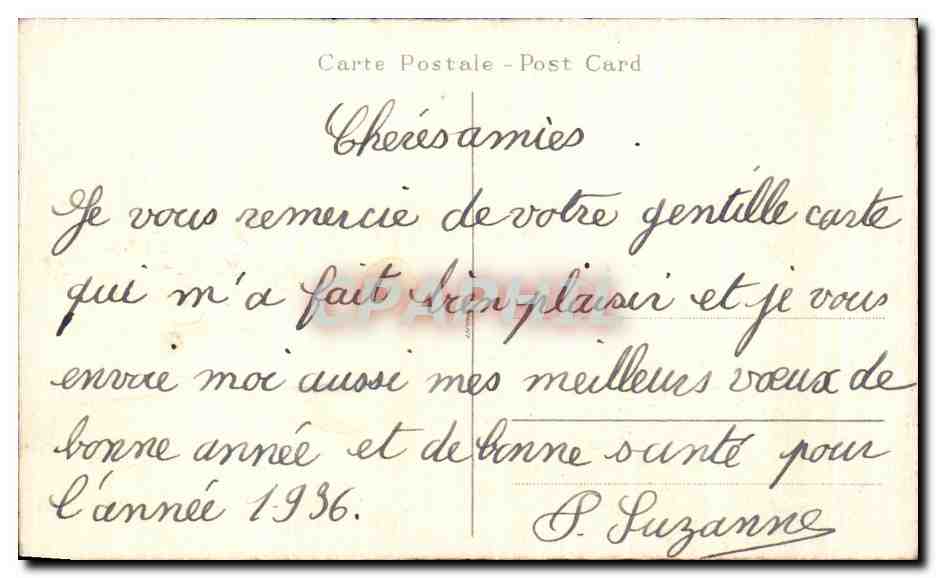 Carte Postale - Post Card
Cherésamies.
Je vous remercie de votre gentille carte
qui m'a fait bien plaisir et je vous
envoie moi aussi mes meilleurs vœux de
bonne année et de bonne santé pour
l'année 1936.
P. Suzanne
CPAPHIL